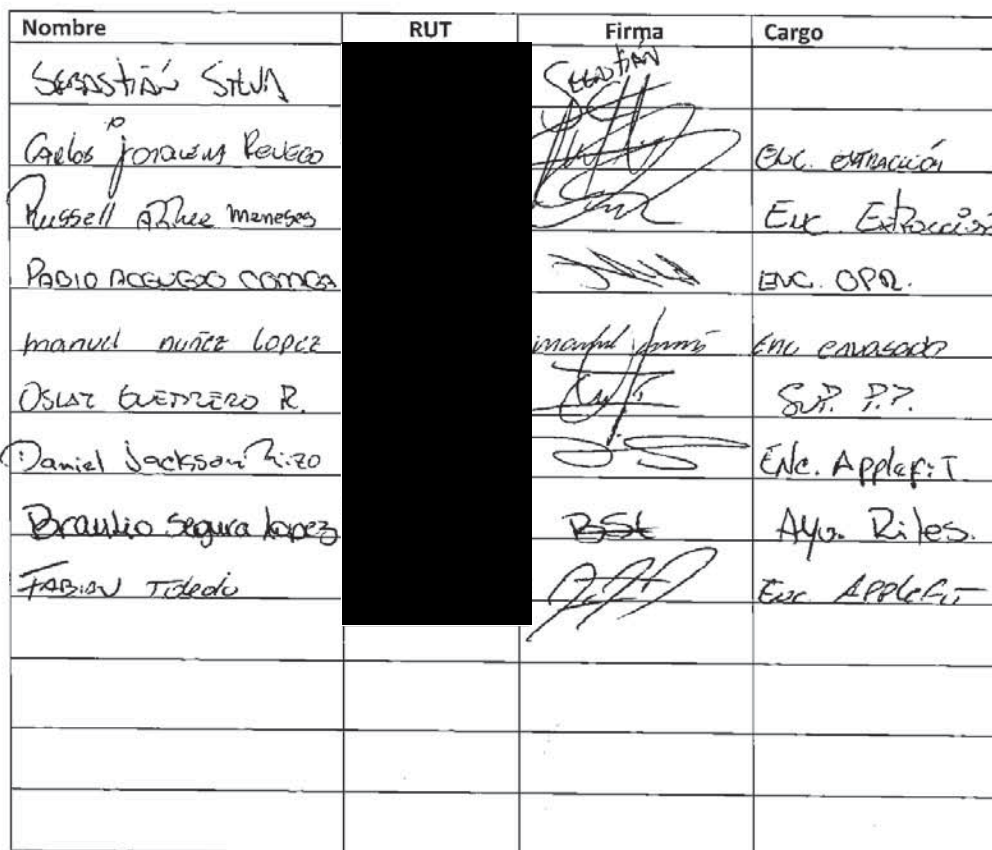 Nombre RUT Firma Cargo
SEBASTIÁN SILVA SEBASTIÁN
Carlos Joaquin ENC. EXTRACCIÓN
Russell Meneses Enc. Extracción
PABLO ACEVEDO CORREA ENC. OPR.
manuel nuñez lopez manuel Enc envasado
OSCAR GUERRERO R. SUP. P.P.
Daniel Jackson Rizo ENc. AppleFiT
Braulio Segura Lopez BSL Ayu. Riles.
FABIAN Toledo Enc AppleFiT